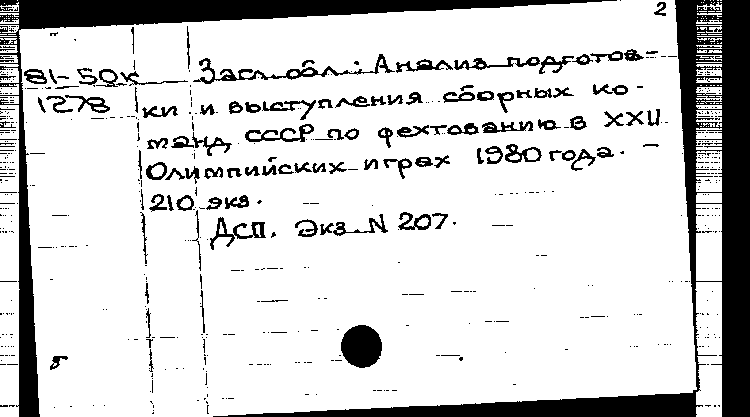 2
81-50к Загл. обл.: Анализ подготов-
1278 ки и выступления сборных ко-
манд СССР по фехтованию в XXII
Олимпийских играх 1980 года. -
210 экз.
ДСП. Экз. N 207.
5